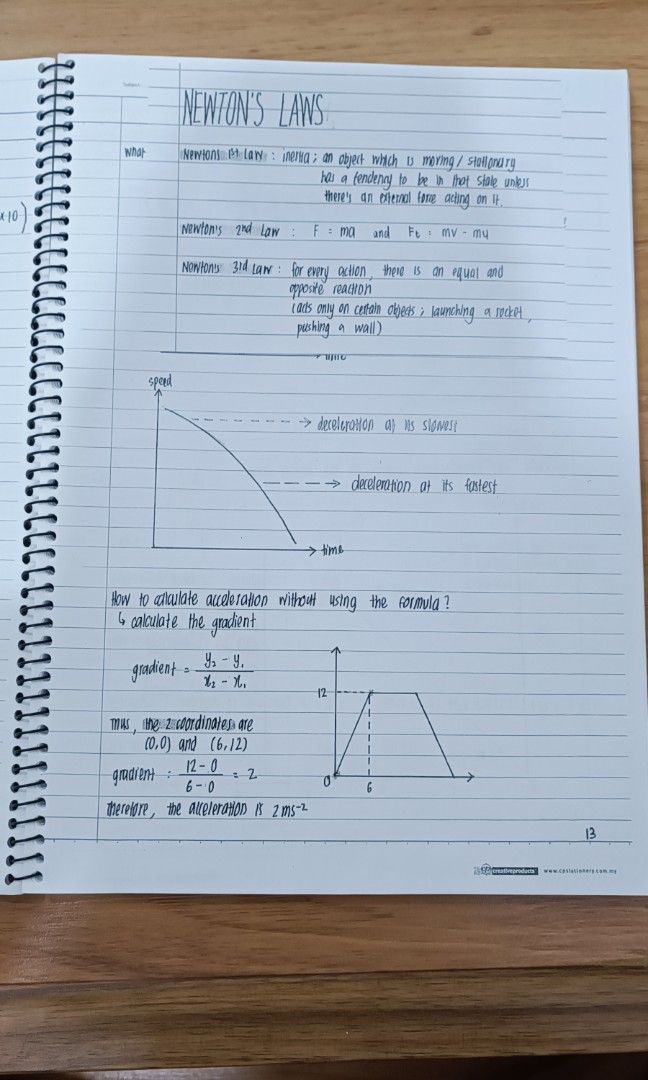 Subject:
x10)
NEWTON'S LAWS
what
Newtons 1st Law : inertia ; an object which is moving / stationary
has a tendency to be in that state unless
there's an external force acting on it.
Newton's 2nd Law : F = ma and Ft = mv - mu
Newton's 3rd Law : for every action, there is an equal and
opposite reaction
(acts only on certain objects ; launching a rocket,
pushing a wall)
time
speed
deceleration at its slowest
deceleration at its fastest
time
How to calculate acceleration without using the formula?
↳ calculate the gradient
gradient = y₂ - y₁
x₂ - x₁
12
0
6
Thus, the 2 coordinates are
(0,0) and (6,12)
gradient : 12 - 0 = 2
6 - 0
therefore, the acceleration is 2 ms⁻²
13
creativeproducts
www.cpstationery.com.my